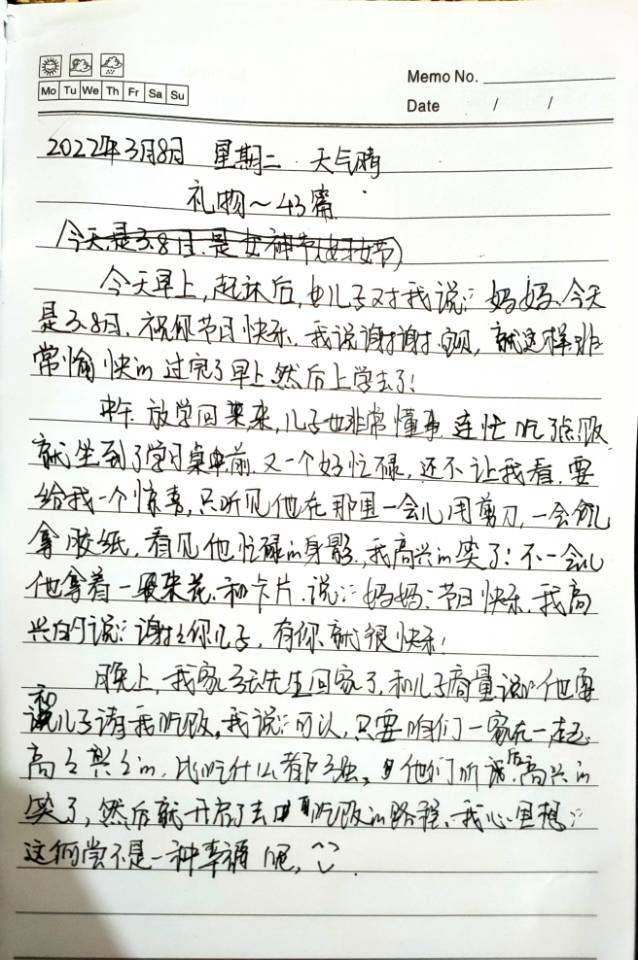 Memo No.
Mo Tu We Th Fr Sa Su
Date / /
2022年3月8日 星期二 天气晴
礼物~43篇
今天是3.8日.是女神节(妇女节)
今天早上,起床后,儿子对我说:妈妈.今天
是3.8日.祝你节日快乐.我说谢谢宝贝,就这样非
常愉快的过完了早上.然后上学去了!
中午放学回来,儿子也非常懂事.连忙吃了点饭
就坐到了学习桌前.又一个好忙碌,还不让我看.要
给我一个惊喜,只听见他在那里一会儿用剪刀.一会儿
拿胶纸.看见他忙碌的身影.我高兴的笑了!不一会儿
他拿着一束花.和卡片.说:妈妈:节日快乐.我高
兴的说:谢谢你儿子,有你就很快乐!
晚上,我家先生回家了,和儿子商量说他要
和儿子请我吃饭,我说:可以,只要咱们一家在一起.
高高兴兴的.比吃什么都强,他们听后高兴的
笑了,然后就开启了去吃饭的路程.我心里想:
这何尝不是一种幸福呢.